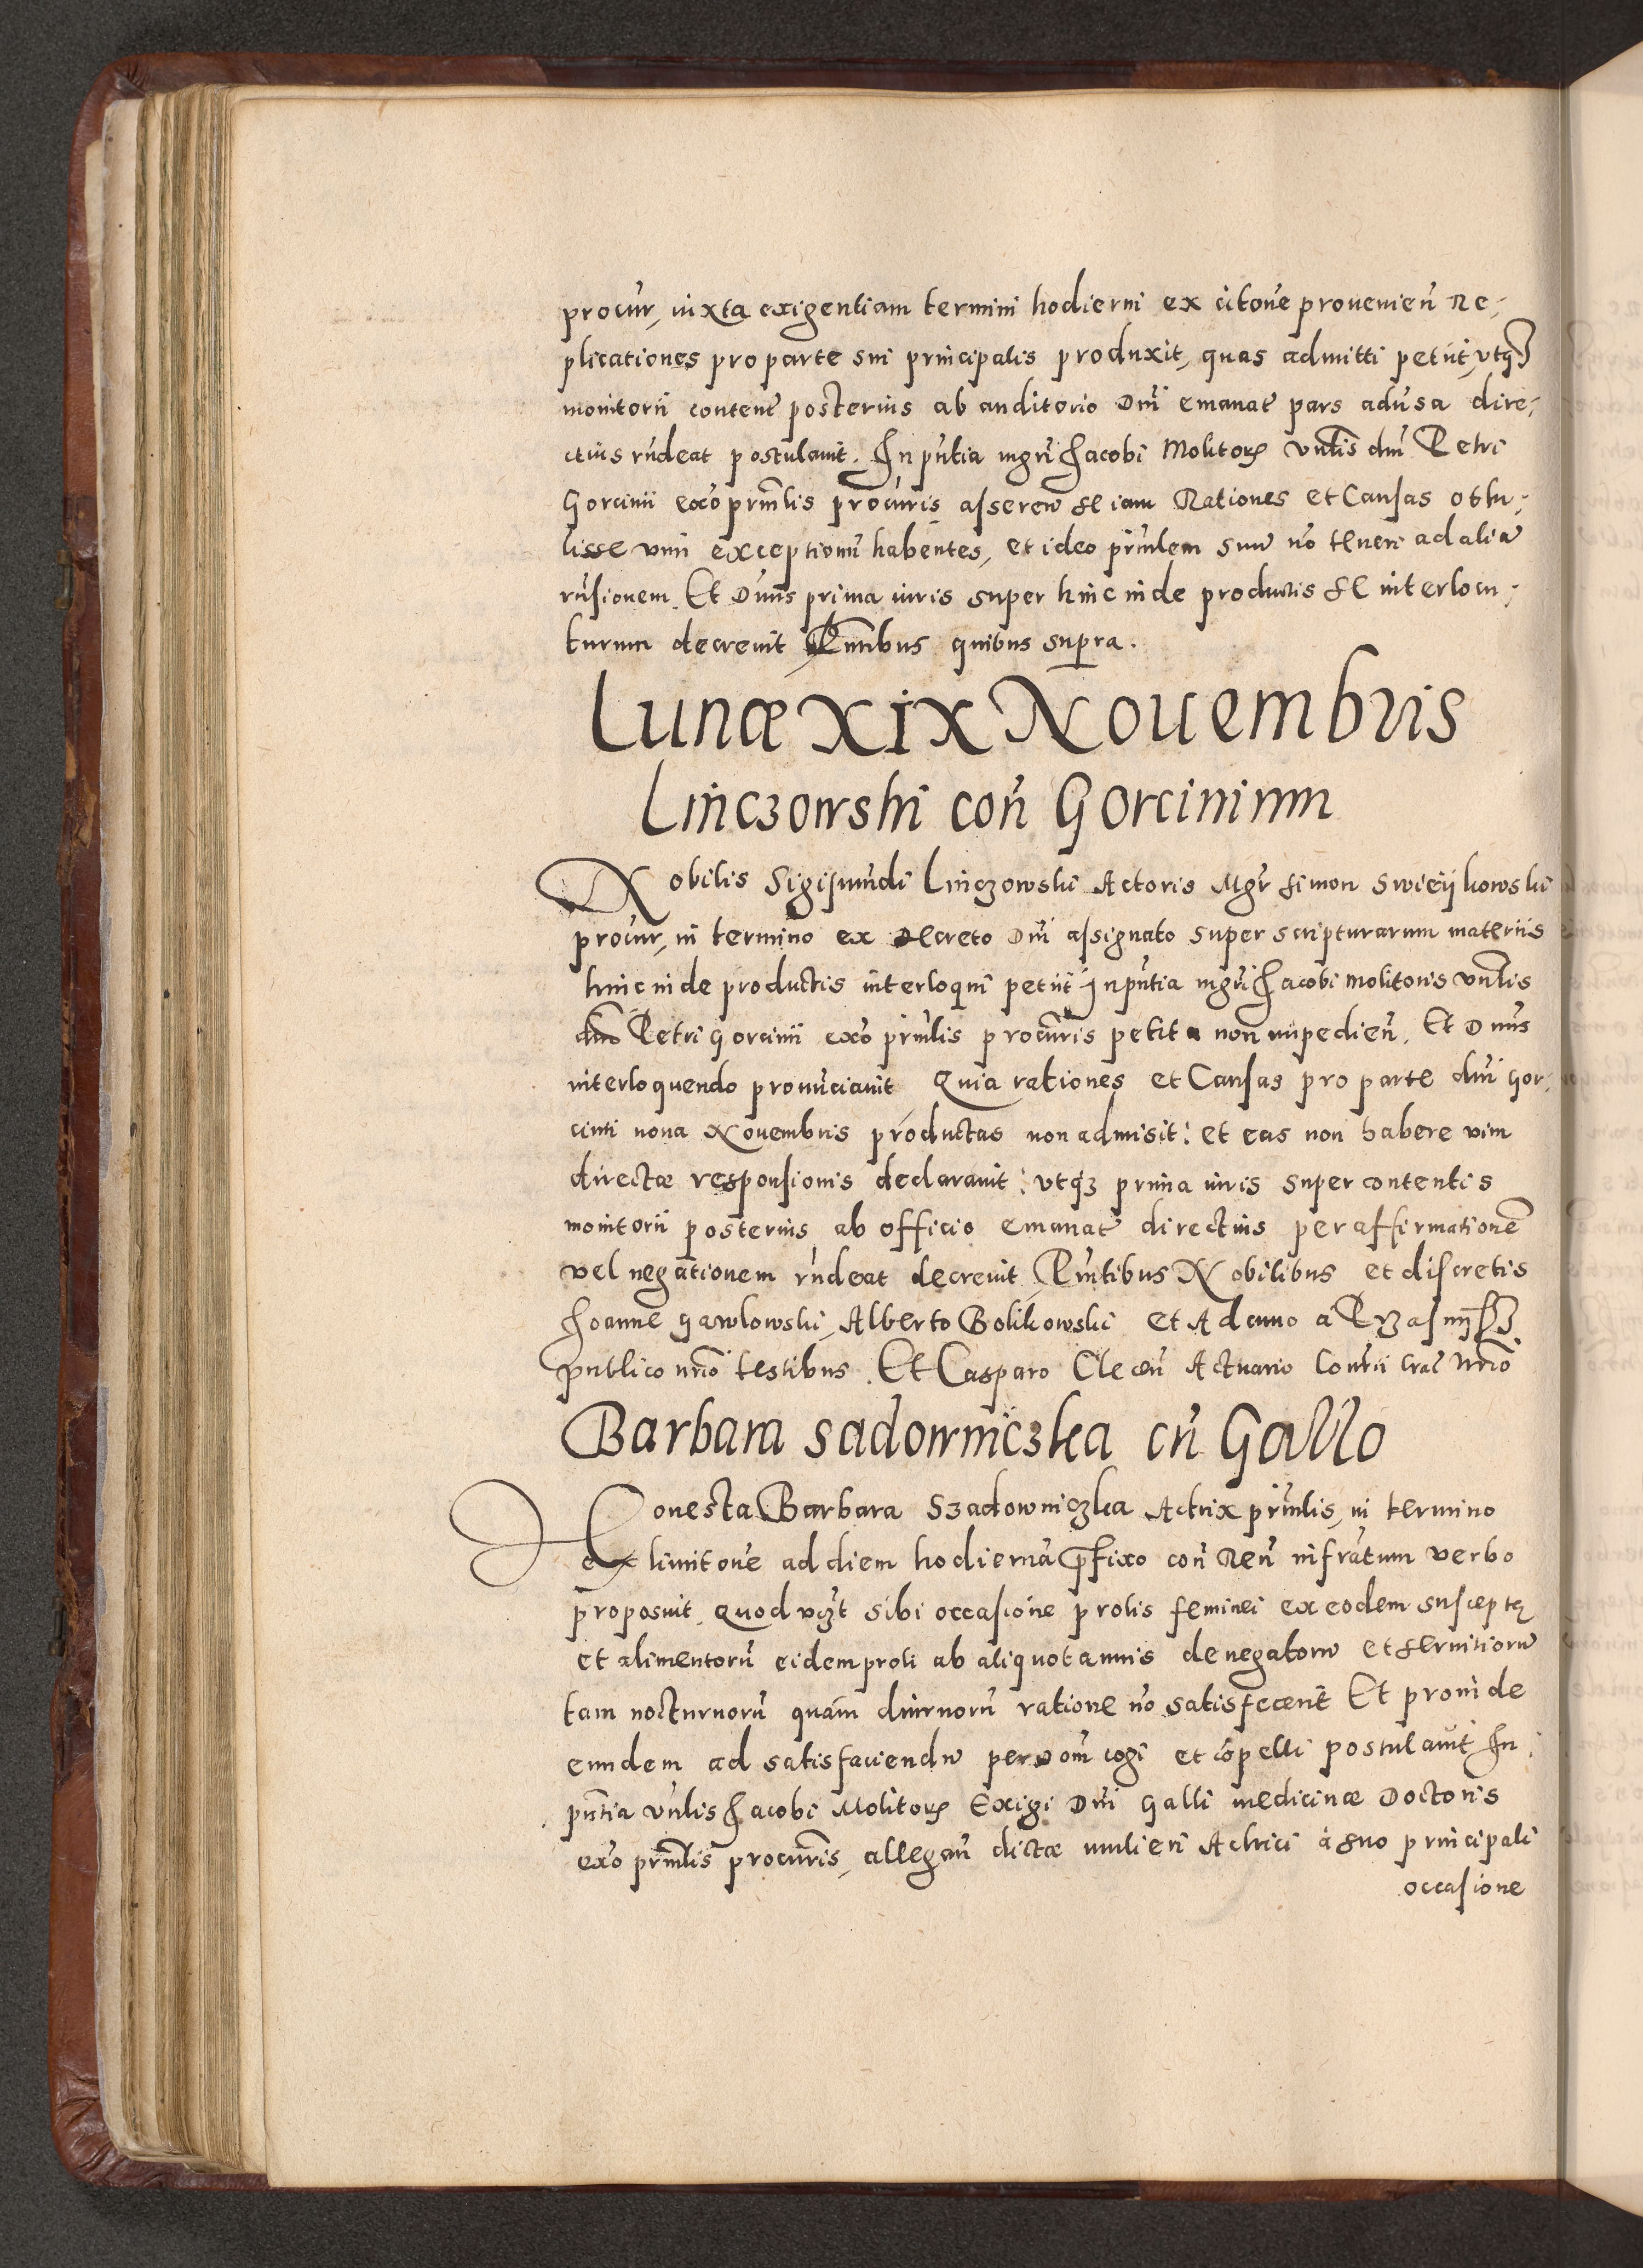 procur̃, iuxta exigentiam termini hodierni ex citoñe prouenień Re-
plicationes pro parte sui principalis produxit, quas admitti petiit, vtqȝ
monitorii content̃ posterius ab auditorio Dnĩ emanat̃ pars aduersa dire-
ctius rñdeat postulauit. In pñtia mgri Jacobi Molitoris vñlis dnĩ Petri
Gorcinii exõ prñlis procuris asseren̄ se iam Rationes et Causas obtu-
lisse vim exceptionũ habentes, et ideo prñlem suũ nõ teneri ad aliã
rñsionem. Et Dnũs prima iuris super hinc inde productis se interlocu-
turum decreuit Pñtibus quibus supra.
Lunæ XIX Nouembris
Linczowski coñ Gorcinium
Nobilis Sigismundi Linczowski Actoris Mgr̃ Simon Swieijkowski
procur̃, in termino ex Decreto Dnĩ assignato super scripturarum materiis
hinc inde productis interloqui petiit In pñtia mgri Jacobi Molitoris vñlis
dnĩ Petri Gorcinii exõ prñlis procuris petita non impedień. Et Dnũs
interloquendo pronũciauit Quia rationes et Causas pro parte dnĩ Gor-
cinii nona Nouembris productas non admisit: et eas non habere vim
directæ responsionis declarauit: vtqȝ prima iuris super contentis
monitorii posterius ab officio emanat̃ directius per affirmationẽ
vel negationem rñdeat decreuit, Pñtibus Nobilibus et discretis
Joanne Gawlowski, Alberto Bolikowski et Adamo a
publico nrĩo testibus. Et Casparo Actuario
Barbara Sadowniczka cũ Gallo
Honesta Barbara Szadowniczka Actrix prñlis, in termino
ex limitoñe ad diem hodiernã p̃fixo coñ Reũ infratum verbo
proposuit. Quod vizt sibi occasione prolis feminei ex eodem susceptę
et alimentorũ eidem proli ab aliquot annis denegatorũ et seruitiorũ
tam nocturnorũ quàm diurnorũ ratione nõ satisfecerit Et proinde
eundem ad satisfaciendũ per Dom̃ cogi et cõpelli postulauit In
pñtia vñlis Jacobi Molitoris Exigi Dnĩ Galli medicinæ Doctoris
exõ prñlis procuris, allegań dictæ mulieri Actrici à suo principali
occasione